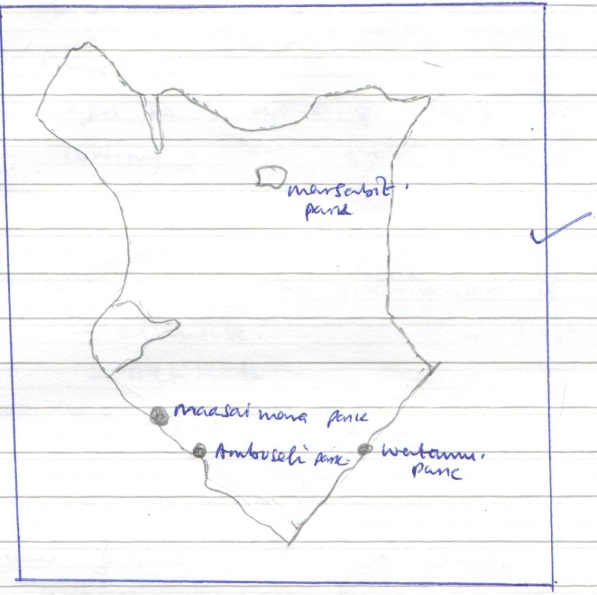 marsabit.
park
maasai mara park
Amboseli park.
watamu.
park